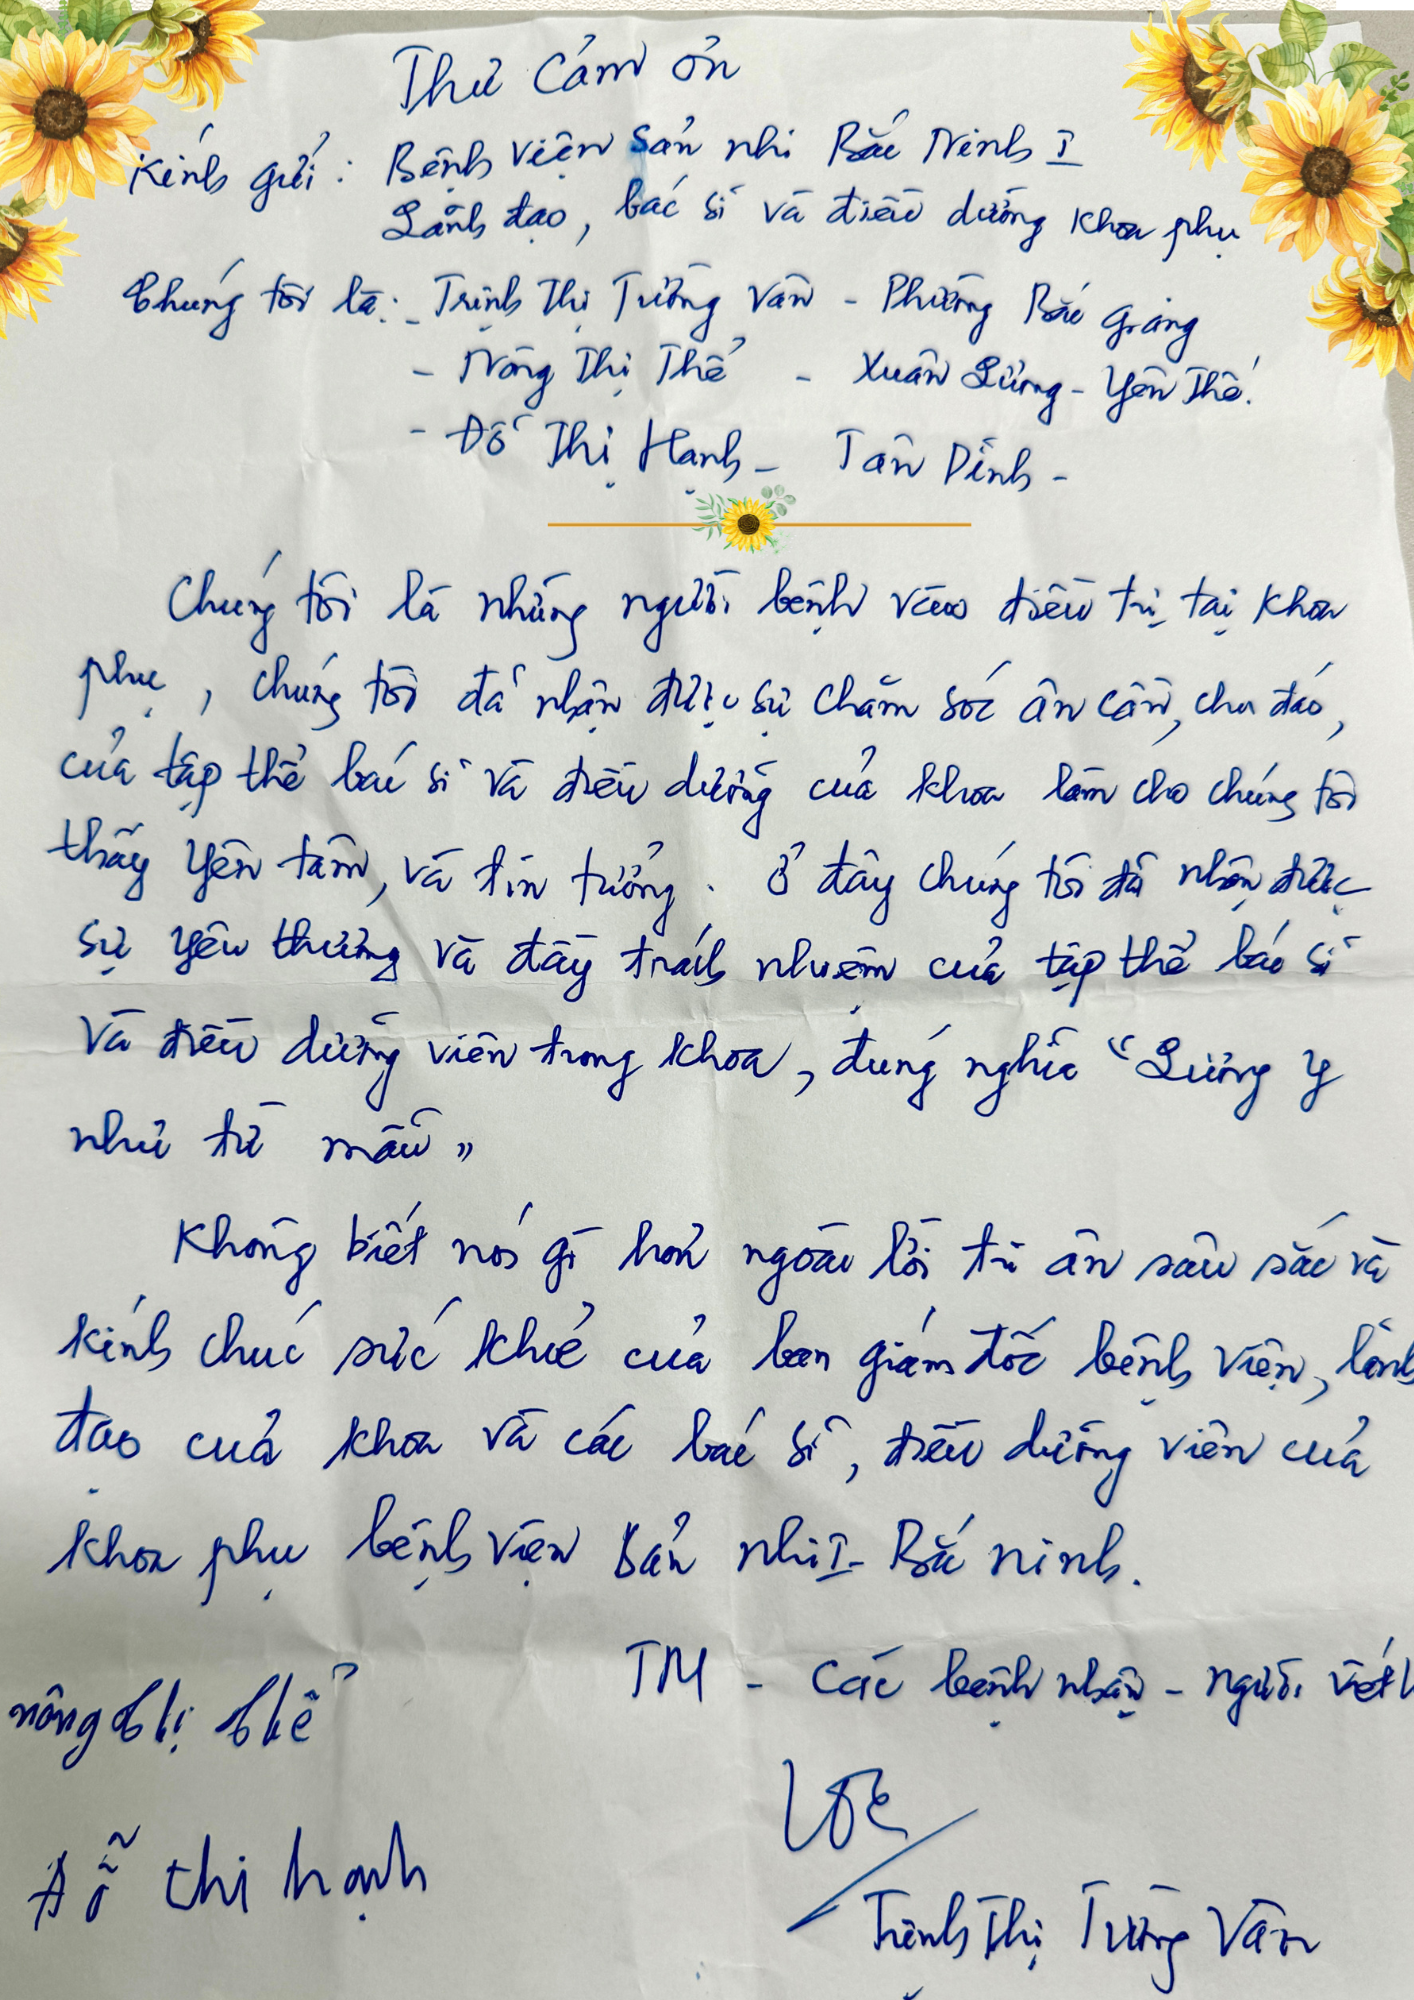 Thư cảm ơn
Kính gửi: Bệnh viện sản nhi Bắc Ninh I
Lãnh đạo, bác sĩ và điều dưỡng khoa phụ
Chúng tôi là: - Trịnh Thị Tường Vân - Phường Bắc Giang
- Nông Thị Thể - Xuân Lương - Yên Thế.
- Đỗ Thị Hạnh - Tân Dĩnh -
Chúng tôi là những người bệnh vào điều trị tại khoa
phụ, chúng tôi đã nhận được sự chăm sóc ân cần, chu đáo,
của tập thể bác sĩ và điều dưỡng của khoa làm cho chúng tôi
thấy yên tâm, và tin tưởng. Ở đây chúng tôi đã nhận được
sự yêu thương và đầy trách nhiệm của tập thể bác sĩ
và điều dưỡng viên trong khoa, đúng nghĩa "Lương y
như từ mẫu"
Không biết nói gì hơn ngoài lời tri ân sâu sắc và
kính chúc sức khỏe của ban giám đốc bệnh viện, lãnh
đạo của khoa và các bác sĩ, điều dưỡng viên của
khoa phụ bệnh viện sản nhi I - Bắc ninh.
TM - Các bệnh nhân - người viết
nông thị thể
Đỗ thị hạnh
Trịnh Thị Tường Vân